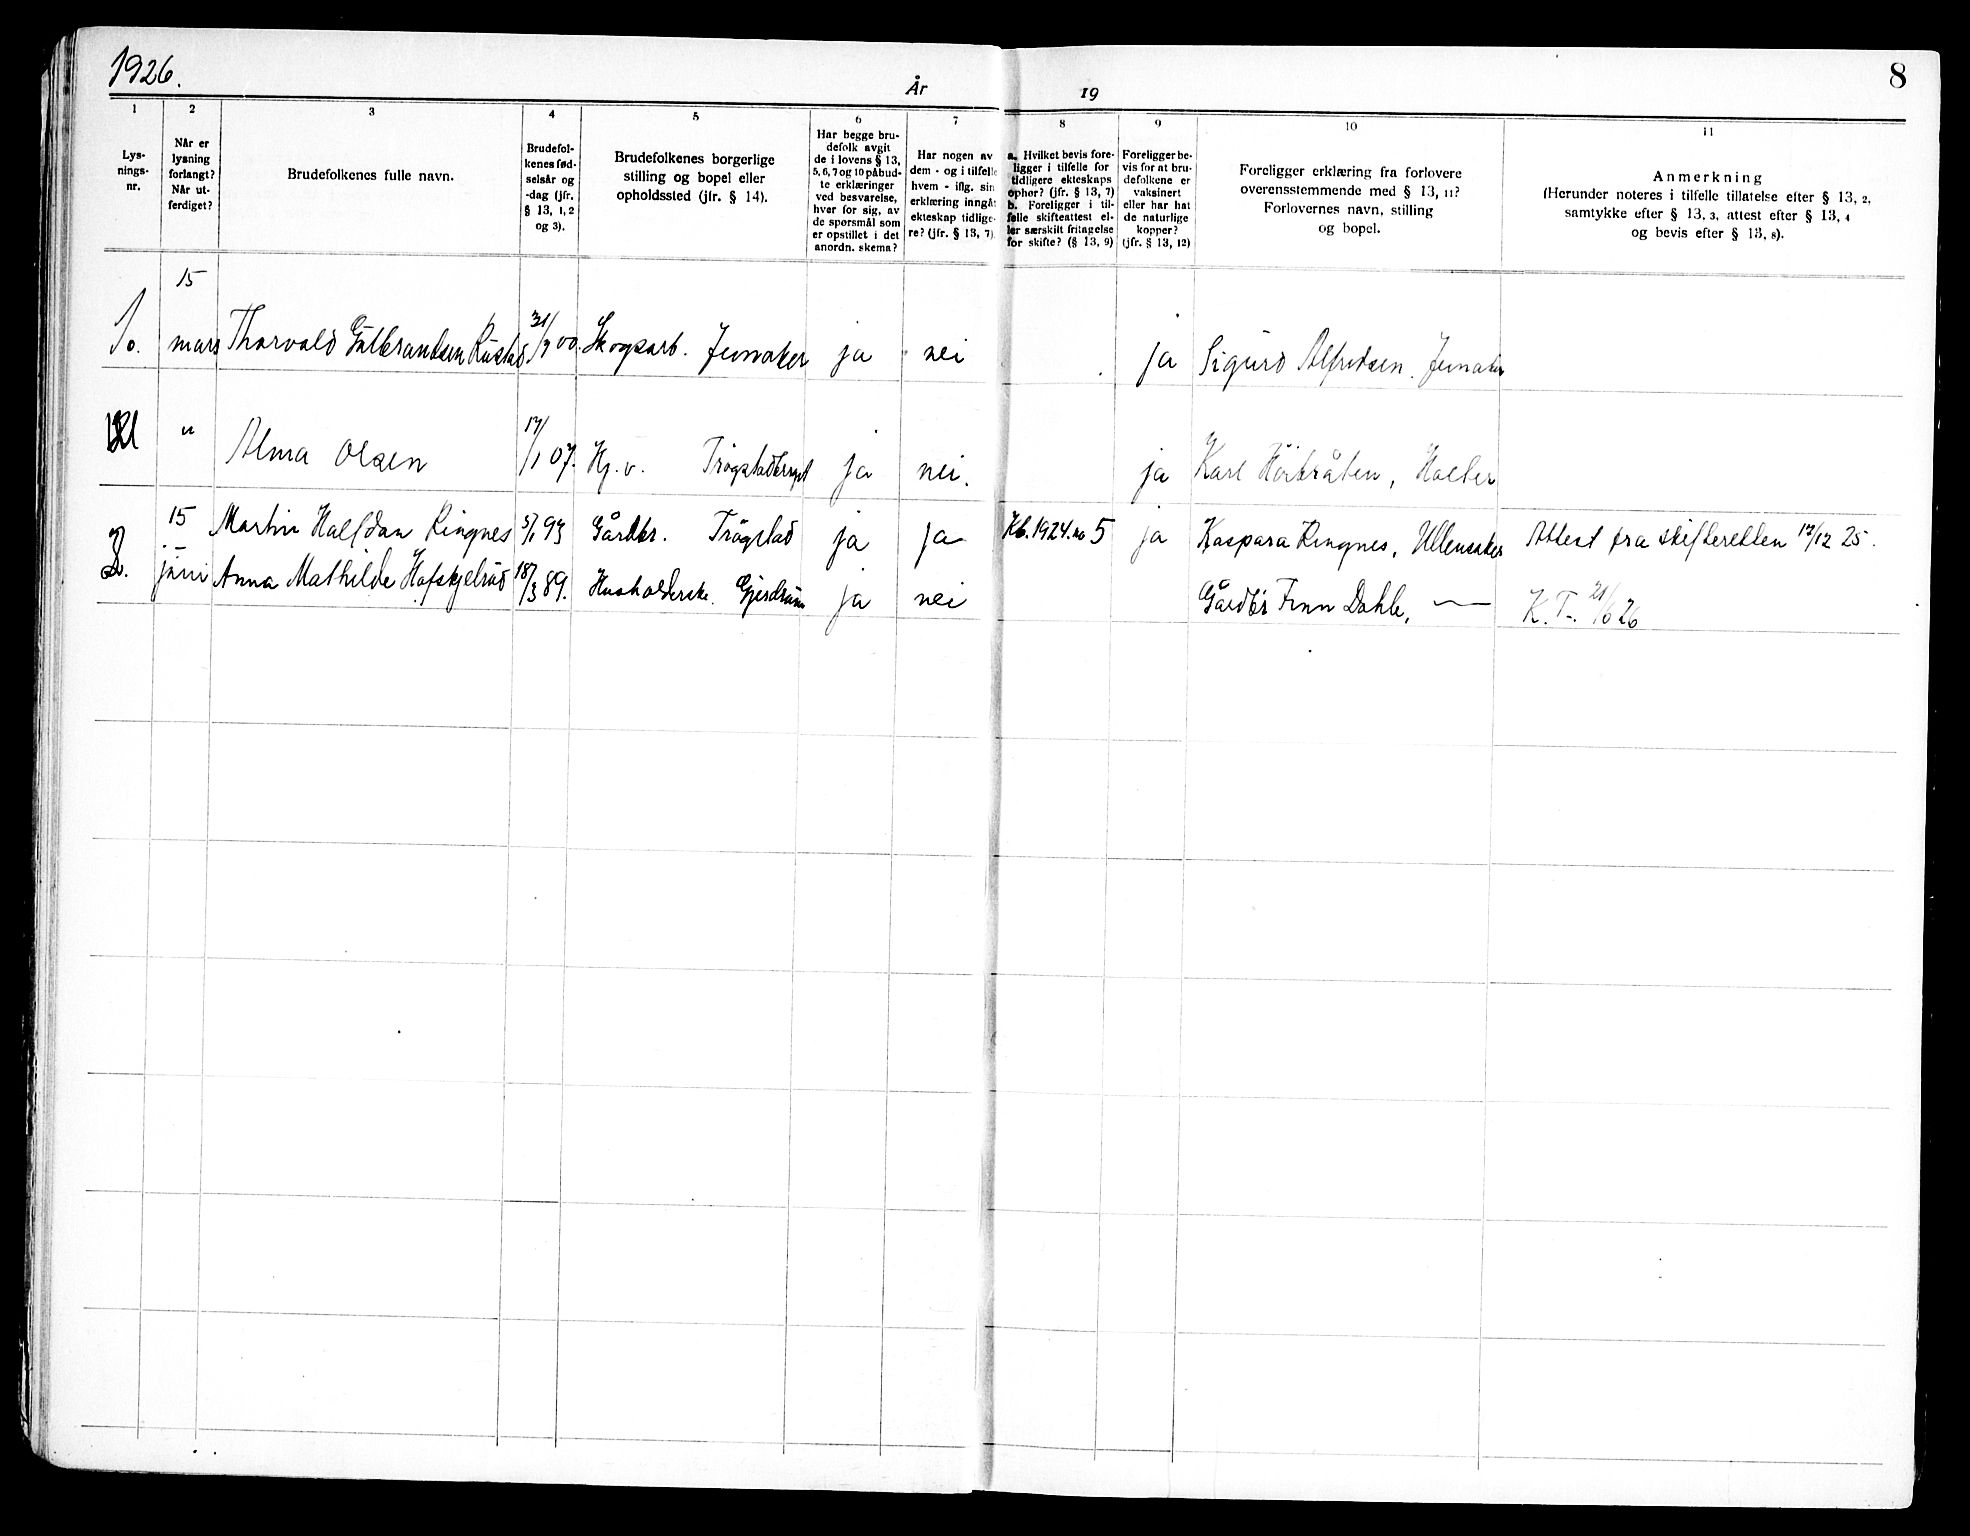 1926.
År 19
8
1 2 3 4 5 6 7 8 9 10 11
Lys-
nings-
nr.
Når er
lysning
forlangt?
Når ut-
ferdiget?
Brudefolkenes fulle navn.
Brudefol-
kenes fød-
selsår og
-dag (jfr.
§ 13, 1, 2
og 3).
Brudefolkenes borgerlige
stilling og bopel eller
opholdssted (jfr. § 14).
Har begge bru-
defolk avgit
de i lovens § 13,
5, 6, 7 og 10 påbud-
te erklæringer
ved besvarelse,
hver for sig, av
de spørsmål som
er opstillet i det
anordn. skema?
Har nogen av
dem - og i tilfelle
hvem - iflg. sin
erklæring inngåt
ekteskap tidlige-
re? (jfr. § 13, 7).
a. Hvilket bevis fore-
ligger i tilfelle for
tidligere ekteskaps
ophør? (jfr. § 13, 7)
b. Foreligger i til-
felle skifteattest el-
ler særskilt fritagelse
for skifte? (§ 13, 9)
Foreligger be-
vis for at bru-
defolkene er
vaksinert
eller har hat
de naturlige
kopper?
(jfr. § 13, 12)
Foreligger erklæring fra forlovere
overensstemmende med § 13, 11?
Forlovernes navn, stilling
og bopel.
Anmerkning
(Herunder noteres i tilfelle tillatelse efter § 13, 2,
samtykke efter § 13, 3, attest efter § 13, 4
og bevis efter § 13, 8).
15
mars Thorvald Gulbrandsen Rustad 31/7 00. Skogsarb. Jevnaker ja nei ja Sigurd Alfredsen. Jevnaker
" Alma Olsen 17/1 07. Hj. v. ja nei. ja Karl Holter
2. 15 Martin Halfdan Ringnes 5/1 93 Gårdbr. Trögstad ja ja Kb. 1924. no 5 ja Kaspara Ringnes, Ullensaker Attest fra skifteretten 17/12 25.
juni Anna Mathilde Hofskjelrud 18/3 89. Husholderske. Gjerdrum ja nei Gårdbr Finn Dahle, — K. T. 21/6 26